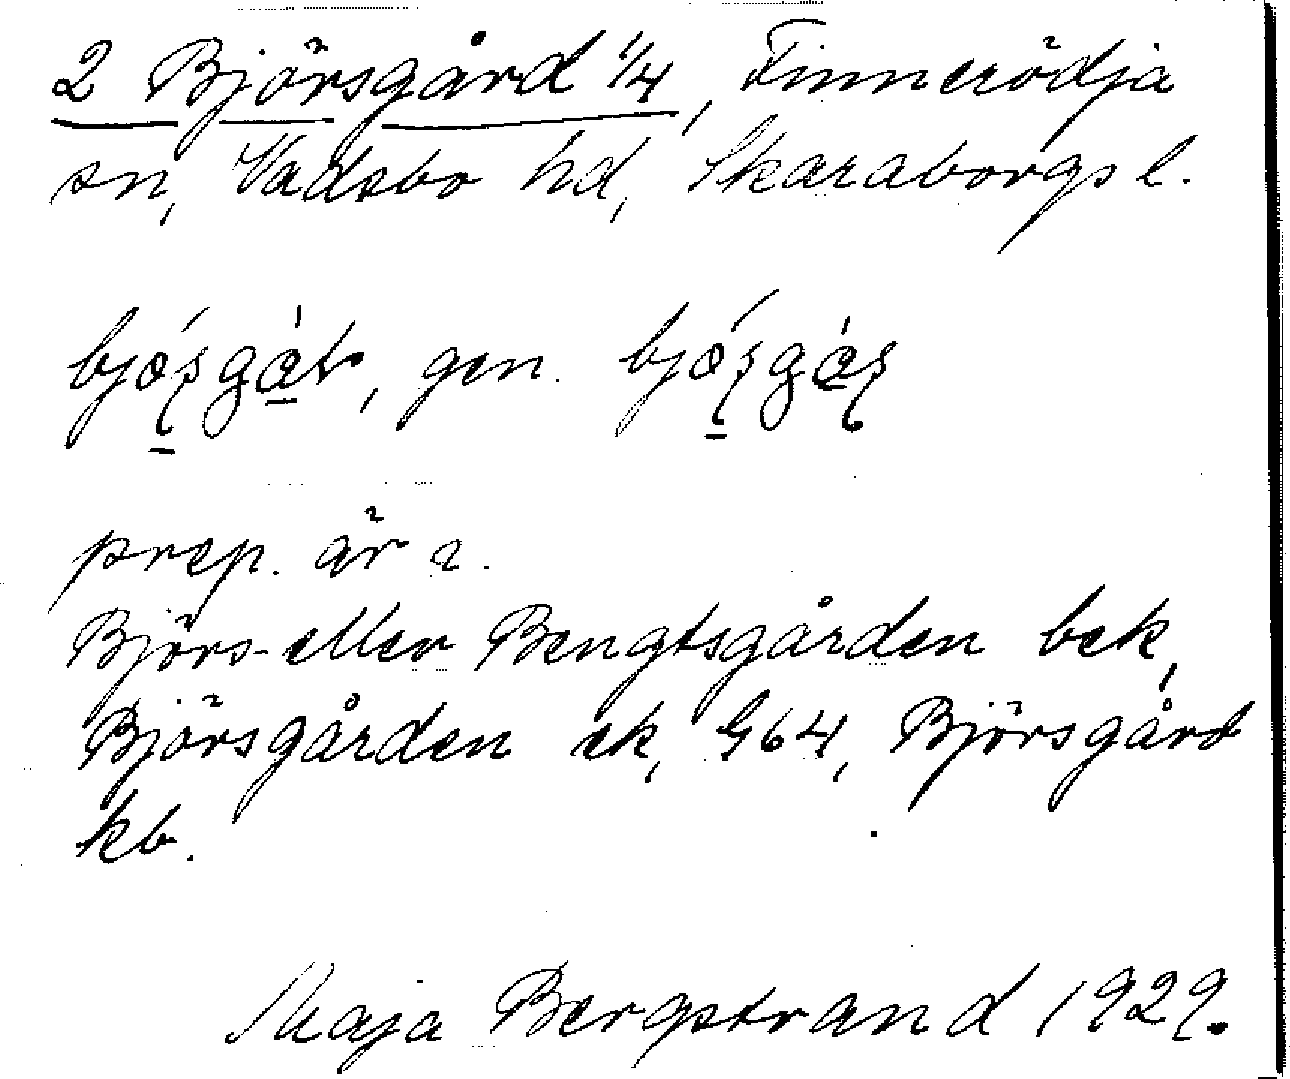 2 Björsgård 1/4, Finnerödja
sn, Vadsbo hd, Skaraborgs l.
gen.
prep. är
Björs- eller Bengtsgården bek,
Björsgården ek, G64, Björsgård
kb.
Maja Bergstrand 1929.